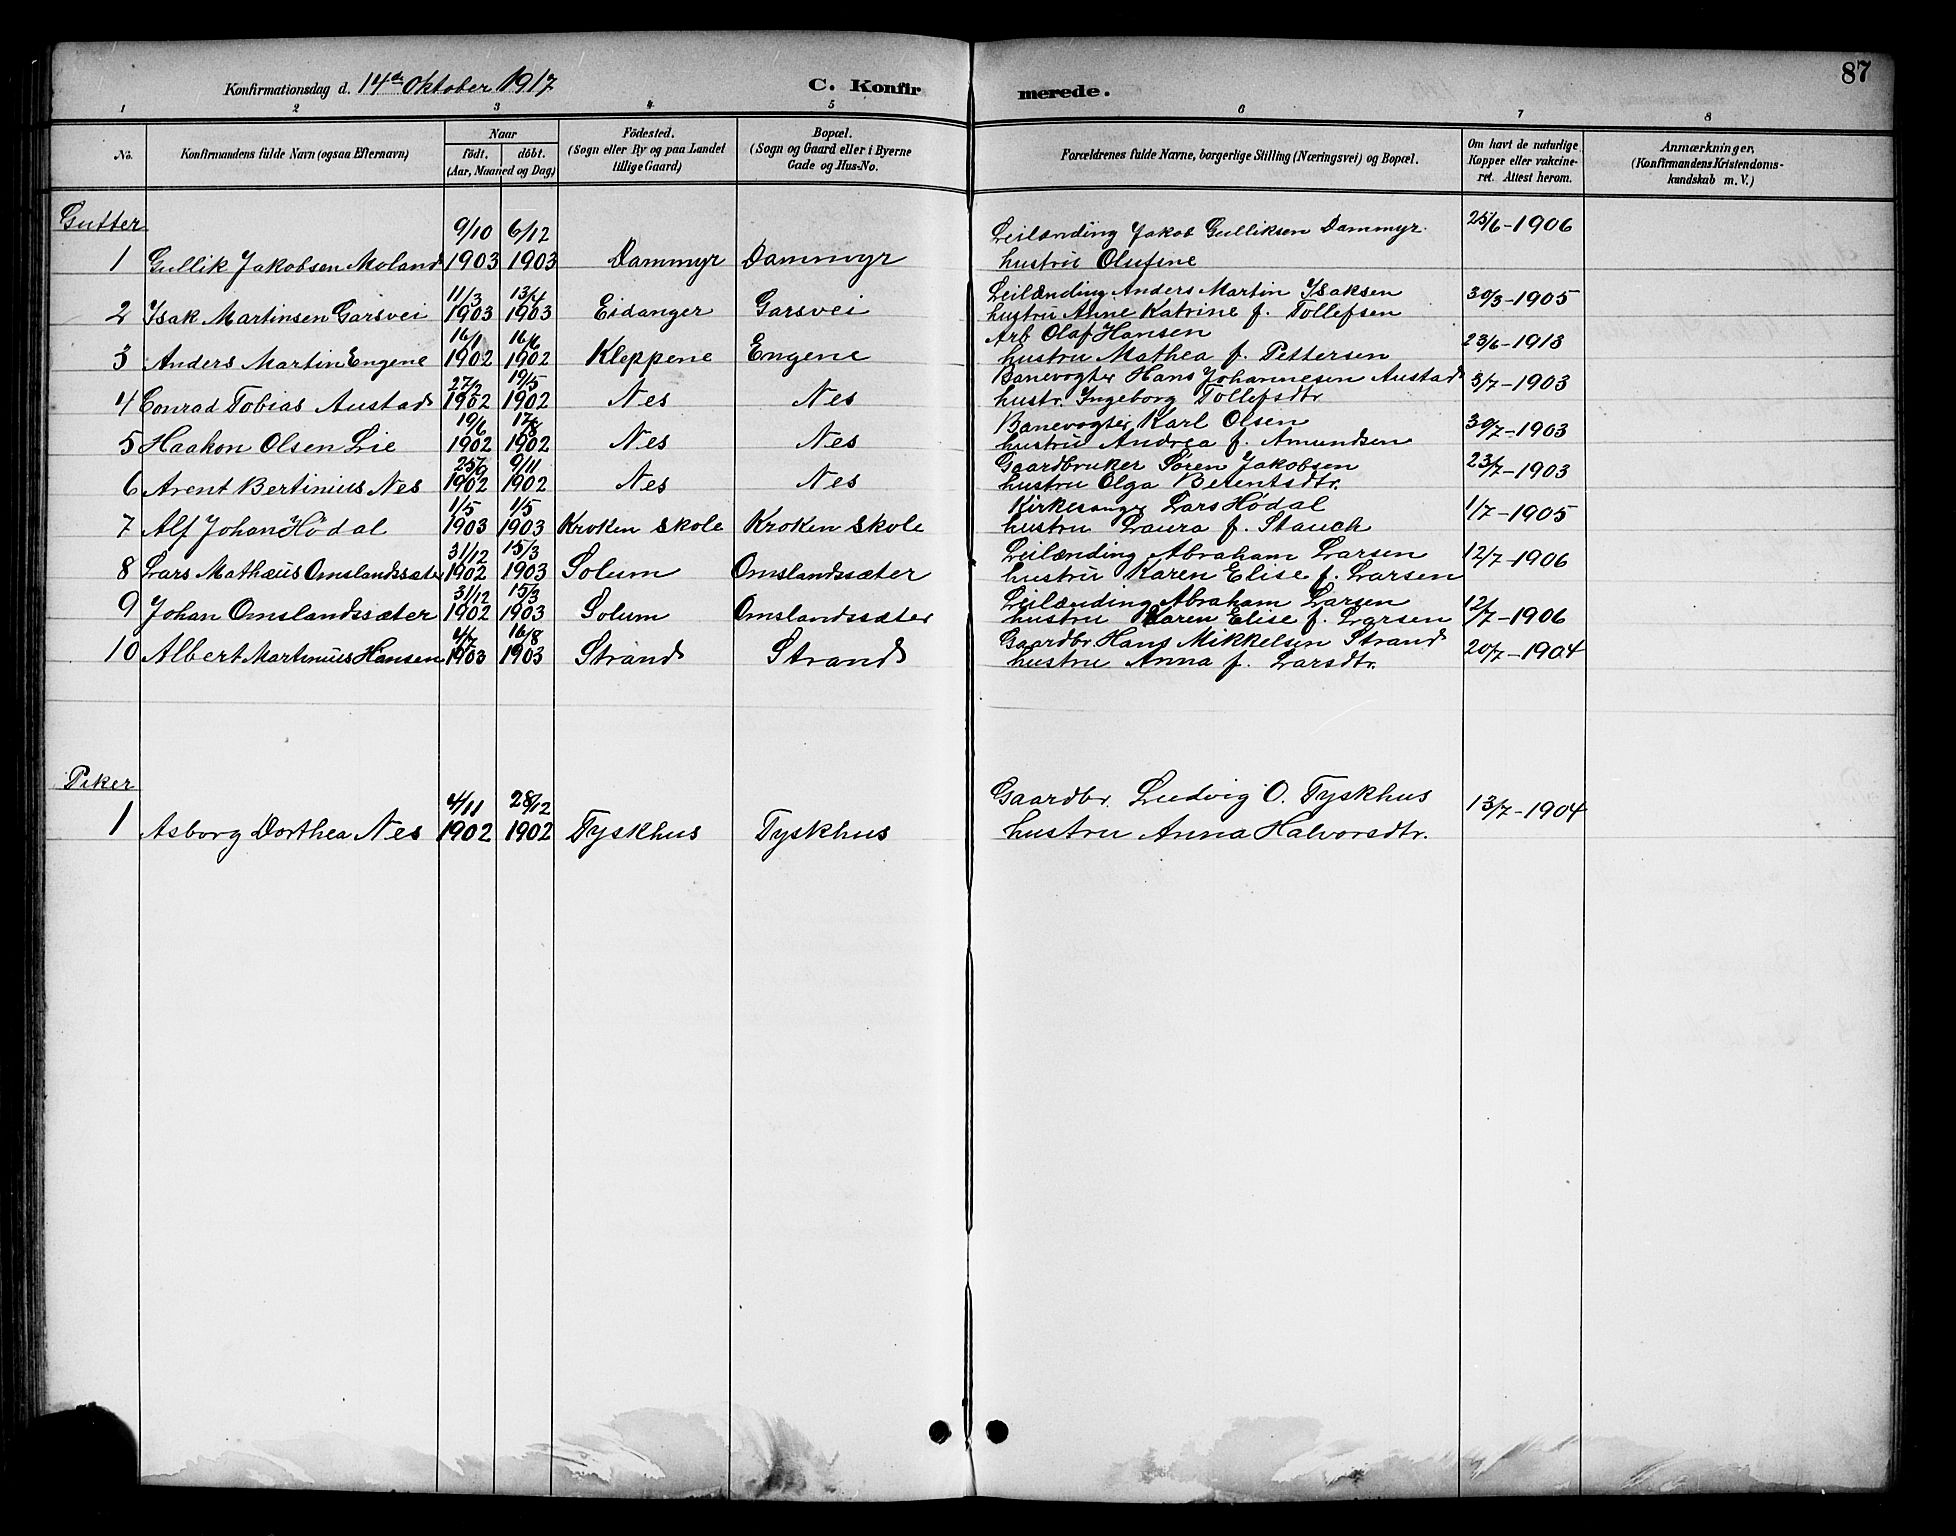 87
Konfirmationsdag d. 14de Oktober 1917 C. Konfirmerede.
1 2 3 4 5 6 7 8
No. Konfirmandens fulde Navn (ogsaa Efternavn) Naar født. døbt. (Aar, Maaned og Dag) Fødested. (Sogn eller By og paa Landet tillige Gaard) Bopæl. (Sogn og Gaard eller i Byerne Gade og Hus-No. Forældrenes fulde Navne, borgerlige Stilling (Næringsvei) og Bopæl. Om havt de naturlige Kopper eller vakcineret. Attest herom. Anmærkninger, (Konfirmandens Kristendomskundskab m. V.)
Gutter
9/10 6/12 Leilænding Jakob Gulliksen Dammyr 25/6-1906
1 Gullik Jakobsen Moland 1903 1903 Dammyr Dammyr hustru Olufine
11/3 13/4 Leilænding Anders Martin Isaksen 30/3-1905
2 Isak Martinsen Garsvei 1903 1903 Eidanger Garsvei hustru Anne Katrine f. Tollefsen
16/1 16/6 Arb Olaf Hansen
3 Anders Martin Engene 1902 1902 Kleppene Engene hustru Mathea f. Pettersen 23/6-1913
19/5 Banevogter Hans Johannesen Austad 3/7-1903
4 Conrad Tobias Austad 1902 1902 Nes Nes hustr. Ingeborg Tollefsdtr
19/6 17/8 Banevogter Karl Olsen 30/7-1903
5 Haakon Olsen Lie 1902 1902 Nes Nes hustru Andrea f. Amundsen
25/9 9/11 Gaardbruker Søren Jakobsen 23/7-1903
6 Arent Bertinius Nes 1902 1902 Nes Nes hustru Olga
1/5 1/5 Kirkesanger Lars Hødal
7 Alf Johan Hødal 1903 1903 Kroken skole Kroken skole hustru Laura f. Stauch 1/7-1905
31/12 15/3 Leilænding Abraham Larsen 12/7-1906
8 Lars Mathæus Omslandssæter 1902 1903 Solum Omslandssæter hustru Karen Elise f. Larsen
31/12 15/3 Leilænding Abraham Larsen
9 Johan Omslandssæter 1902 1903 Solum Omslandssæter hustru Karen Elise f. Larsen 12/7-1906
4/7 16/8 Gaardbr. Hans Mikkelsen Strand
10 Albert Martinius Hansen 1903 1903 Strand Strand hustru Anna f. Larsdtr. 20/7-1904
Piker
4/11 28/12 Gaardbr. Ludvig O. Tyskhus 13/7-1904
1 Asborg Dorthea Nes 1902 1902 Tyskhus Tyskhus hustru Anna Halvorsdtr.